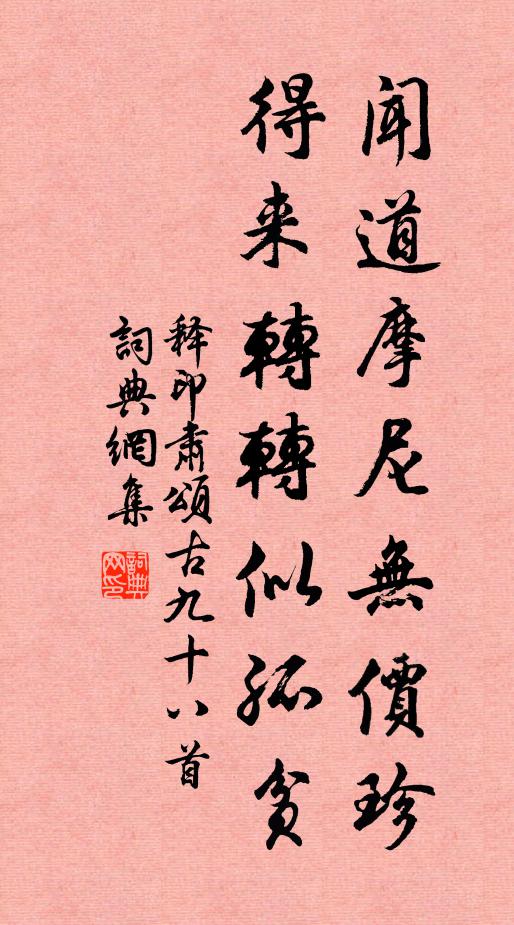 聞道摩尼無價珍
得来轉轉似孤貧
释印肅頌古九十八首
詞典網集
詞典网印